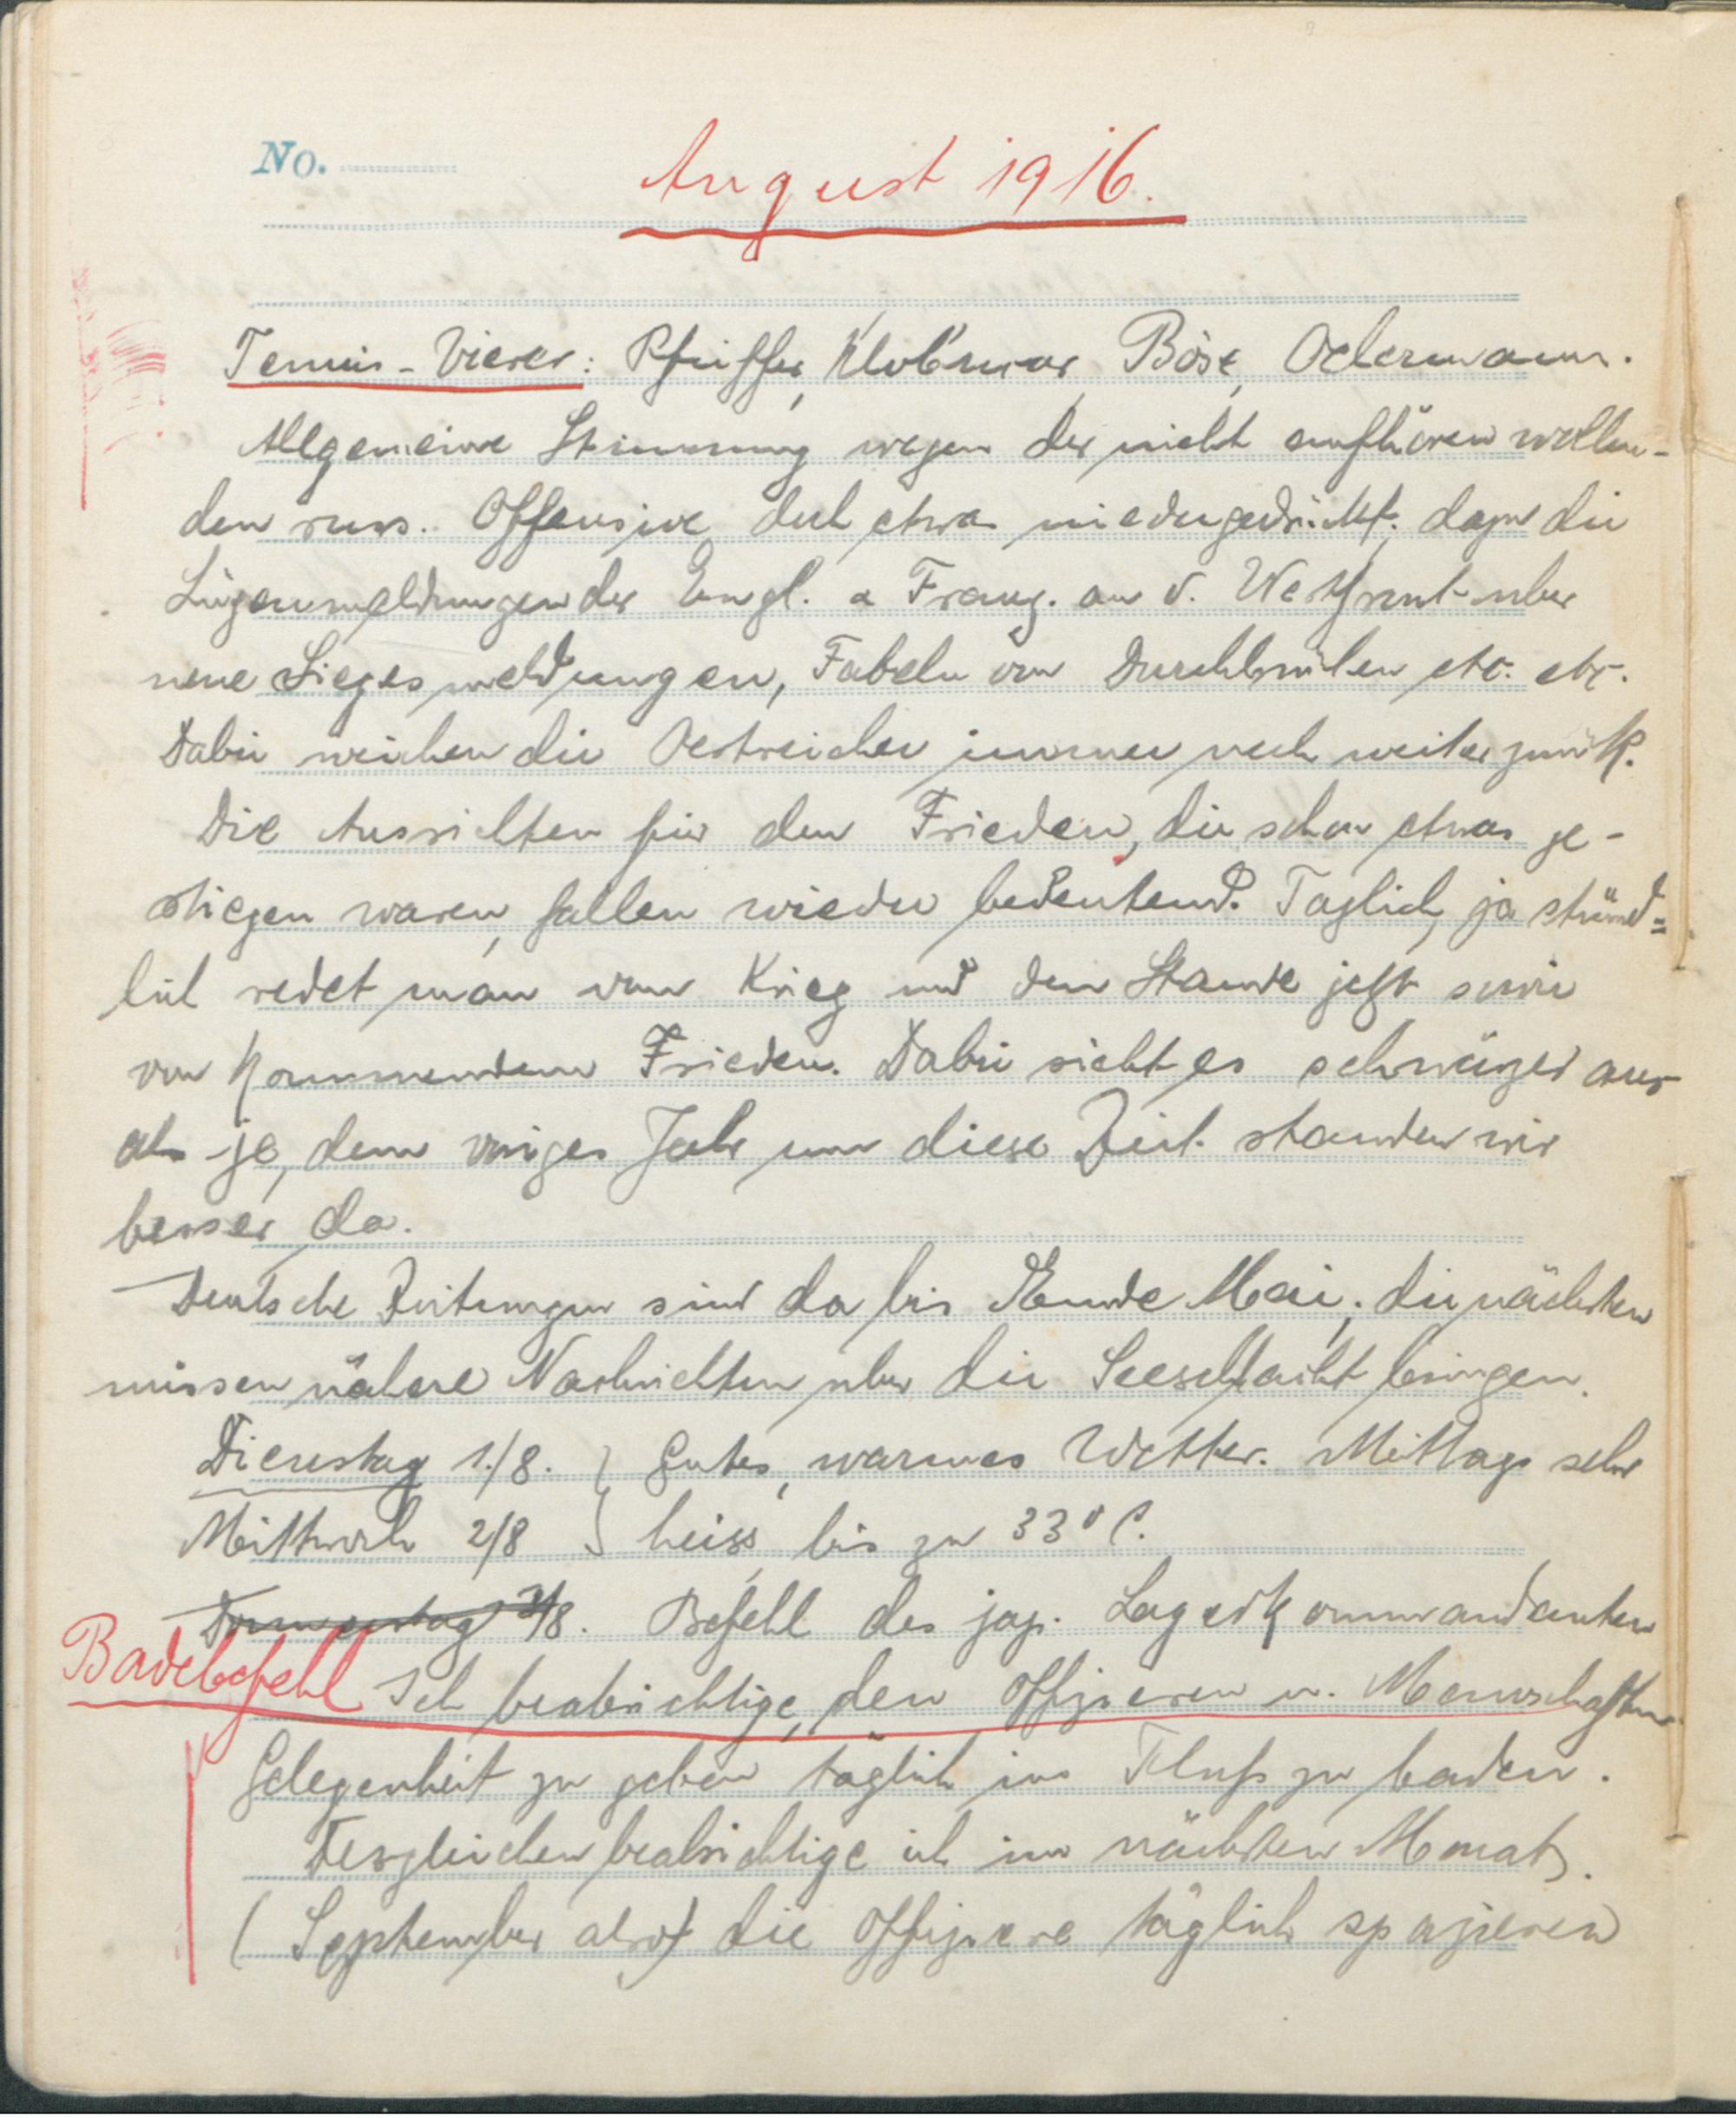 No.
August 1916.
Tennis-Vierer: Pfeiffer, Klobucar, Böse, Oelermann.
Allgemeine Stimmung wegen der nicht aufhören wollen-
den russ. Offensive doch etwas niedergedrückt; dazu die
Lügenmeldungen der Engl. u Franz. an d. Westfront über
neue Siegesmeldungen, Fabeln von Durchbrüchen etc. etc.
Dabei weichen die Oestreicher immer noch weiter zurück.
Die Aussichten für den Frieden, die schon etwas ge-
stiegen waren, fallen wieder bedeutend. Täglich, ja stünd=
lich redet man vom Krieg und dem Stande jetzt sowie
von kommendem Frieden. Dabei sieht es schwärzer aus
als je, denn voriges Jahr um diese Zeit standen wir
besser da.
Deutsche Zeitungen sind da bis Ende Mai; die nächsten
müssen nähere Nachrichten über die Seeschlacht bringen.
Dienstag 1./8. } Gutes, warmes Wetter. Mittags sehr
Mittwoch 2/8 } heiss, bis zu 33° C.
Donnerstag 3/8. Befehl des jap. Lagerkommandanten
Badebefehl Ich beabsichtige, den Offizieren u. Mannschaften
Gelegenheit zu geben täglich im Fluß zu baden.
Desgleichen beabsichtige ich im nächsten Monat
(September also) die Offiziere täglich spazieren